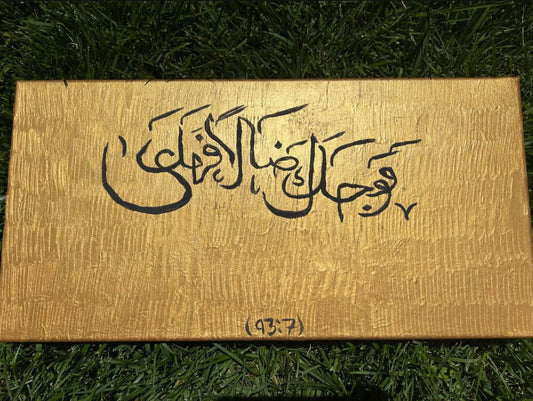 وَوَجَدَكَ ضَالًّا فَهَدَىٰ
(93:7)